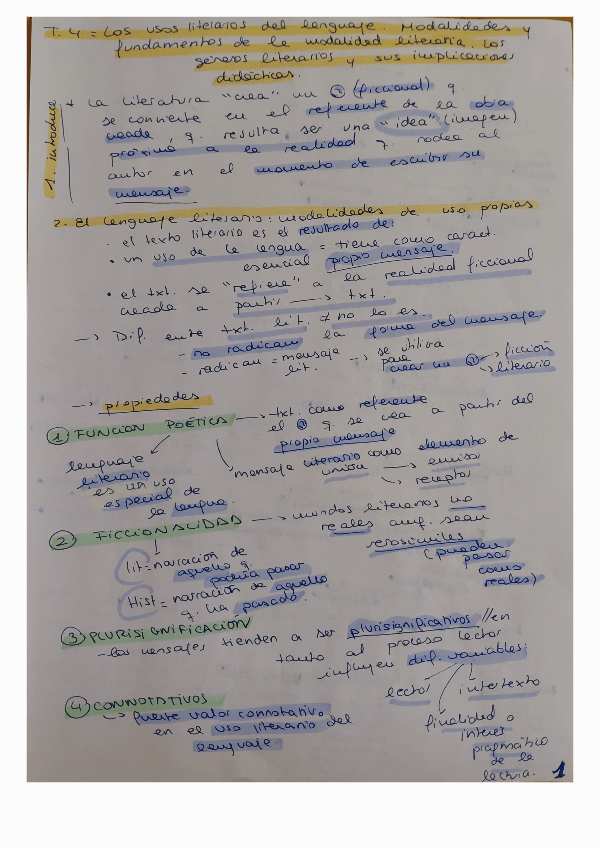 T. 4 = Los usos literarios del lenguaje. Modalidades y
fundamentos de la modalidad literaria. Los
géneros literarios y sus implicaciones
didácticas.
1. introducc
* La literatura "crea" un (ficcional) q.
se convierte en el referente de la obra
creada, q. resulta ser una "idea" (imagen)
próxima a la realidad q. rodea al
autor en el momento de escribir su
mensaje.
2. El lenguaje literario: modalidades de uso propias
- el texto literario es el resultado de:
• un uso de la lengua = tiene como caract.
esencial propio mensaje.
• el txt. se "refiere" a la realidad ficcional
creada a partir → txt.
→ Dif. entre txt. lit. ≠ no lo es.
- no radican la forma del mensaje.
- radican = mensaje lit. → se utiliza para
crear un → ficción
→ literario
→ propiedades
① FUNCIÓN POÉTICA → txt. como referente
el q. se crea a partir del
propio mensaje
lenguaje
literario
es un uso
especial de
la lengua.
mensaje literario como elemento de
unión → emisor
→ receptor
② FICCIONALIDAD → mundos literarios no
reales aunq. sean
verosímiles
(pueden
pasar
como
reales)
lit = narración de
aquello q.
podría pasar
Hist = narración de aquello
q. ha pasado.
③ PLURISIGNIFICACIÓN
- los mensajes tienden a ser plurisignificativos // en
tanto al proceso lector
influyen dif. variables:
lector
intertexto
finalidad o
interés
pragmático
de la
lectura.
④ CONNOTATIVOS
→ fuerte valor connotativo
en el uso literario del
lenguaje.
1